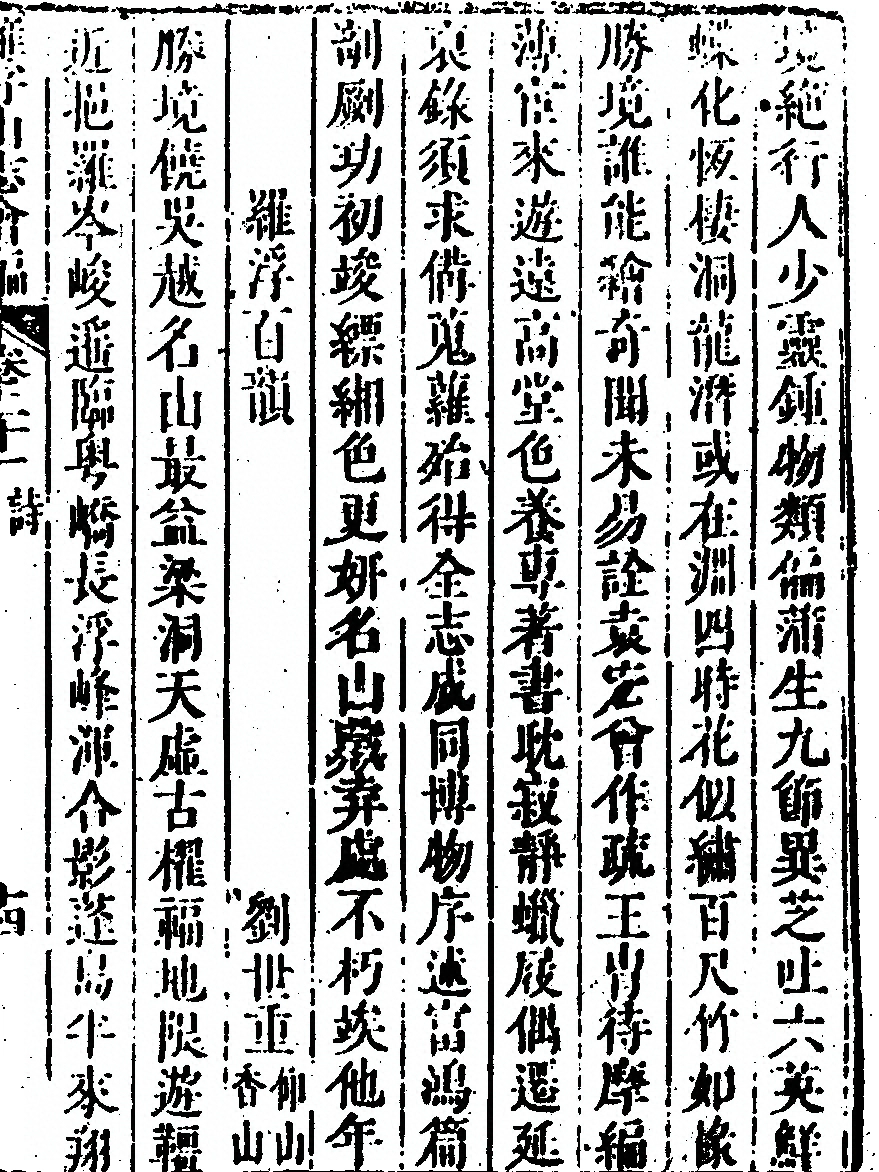 境絶行人少靈鍾物類偏蒲生九節異芝吐六英鮮
蝶化恆棲洞龍潛或在淵四時花似繡百尺竹如椽
勝境誰能繪奇聞未易詮袁宏曾作疏王胄待摩編
薄宦來遊遠高堂色養專著書耽寂靜蠟屐偶還延
裒錄須求備蒐羅殆得全志成同博物序述富鴻篇
剞劂功初竣縹緗色更妍名山藏弆處不朽竢他年
羅浮百韻 劉世重 仰山 香山
勝境饒吳越名山最益梁洞天虛古櫂福地限遊韁
近挹羅岑峻遥臨粤嶠長浮峰渾合影蓬島半來翔
羅浮山志會編 卷二十一 詩 十四